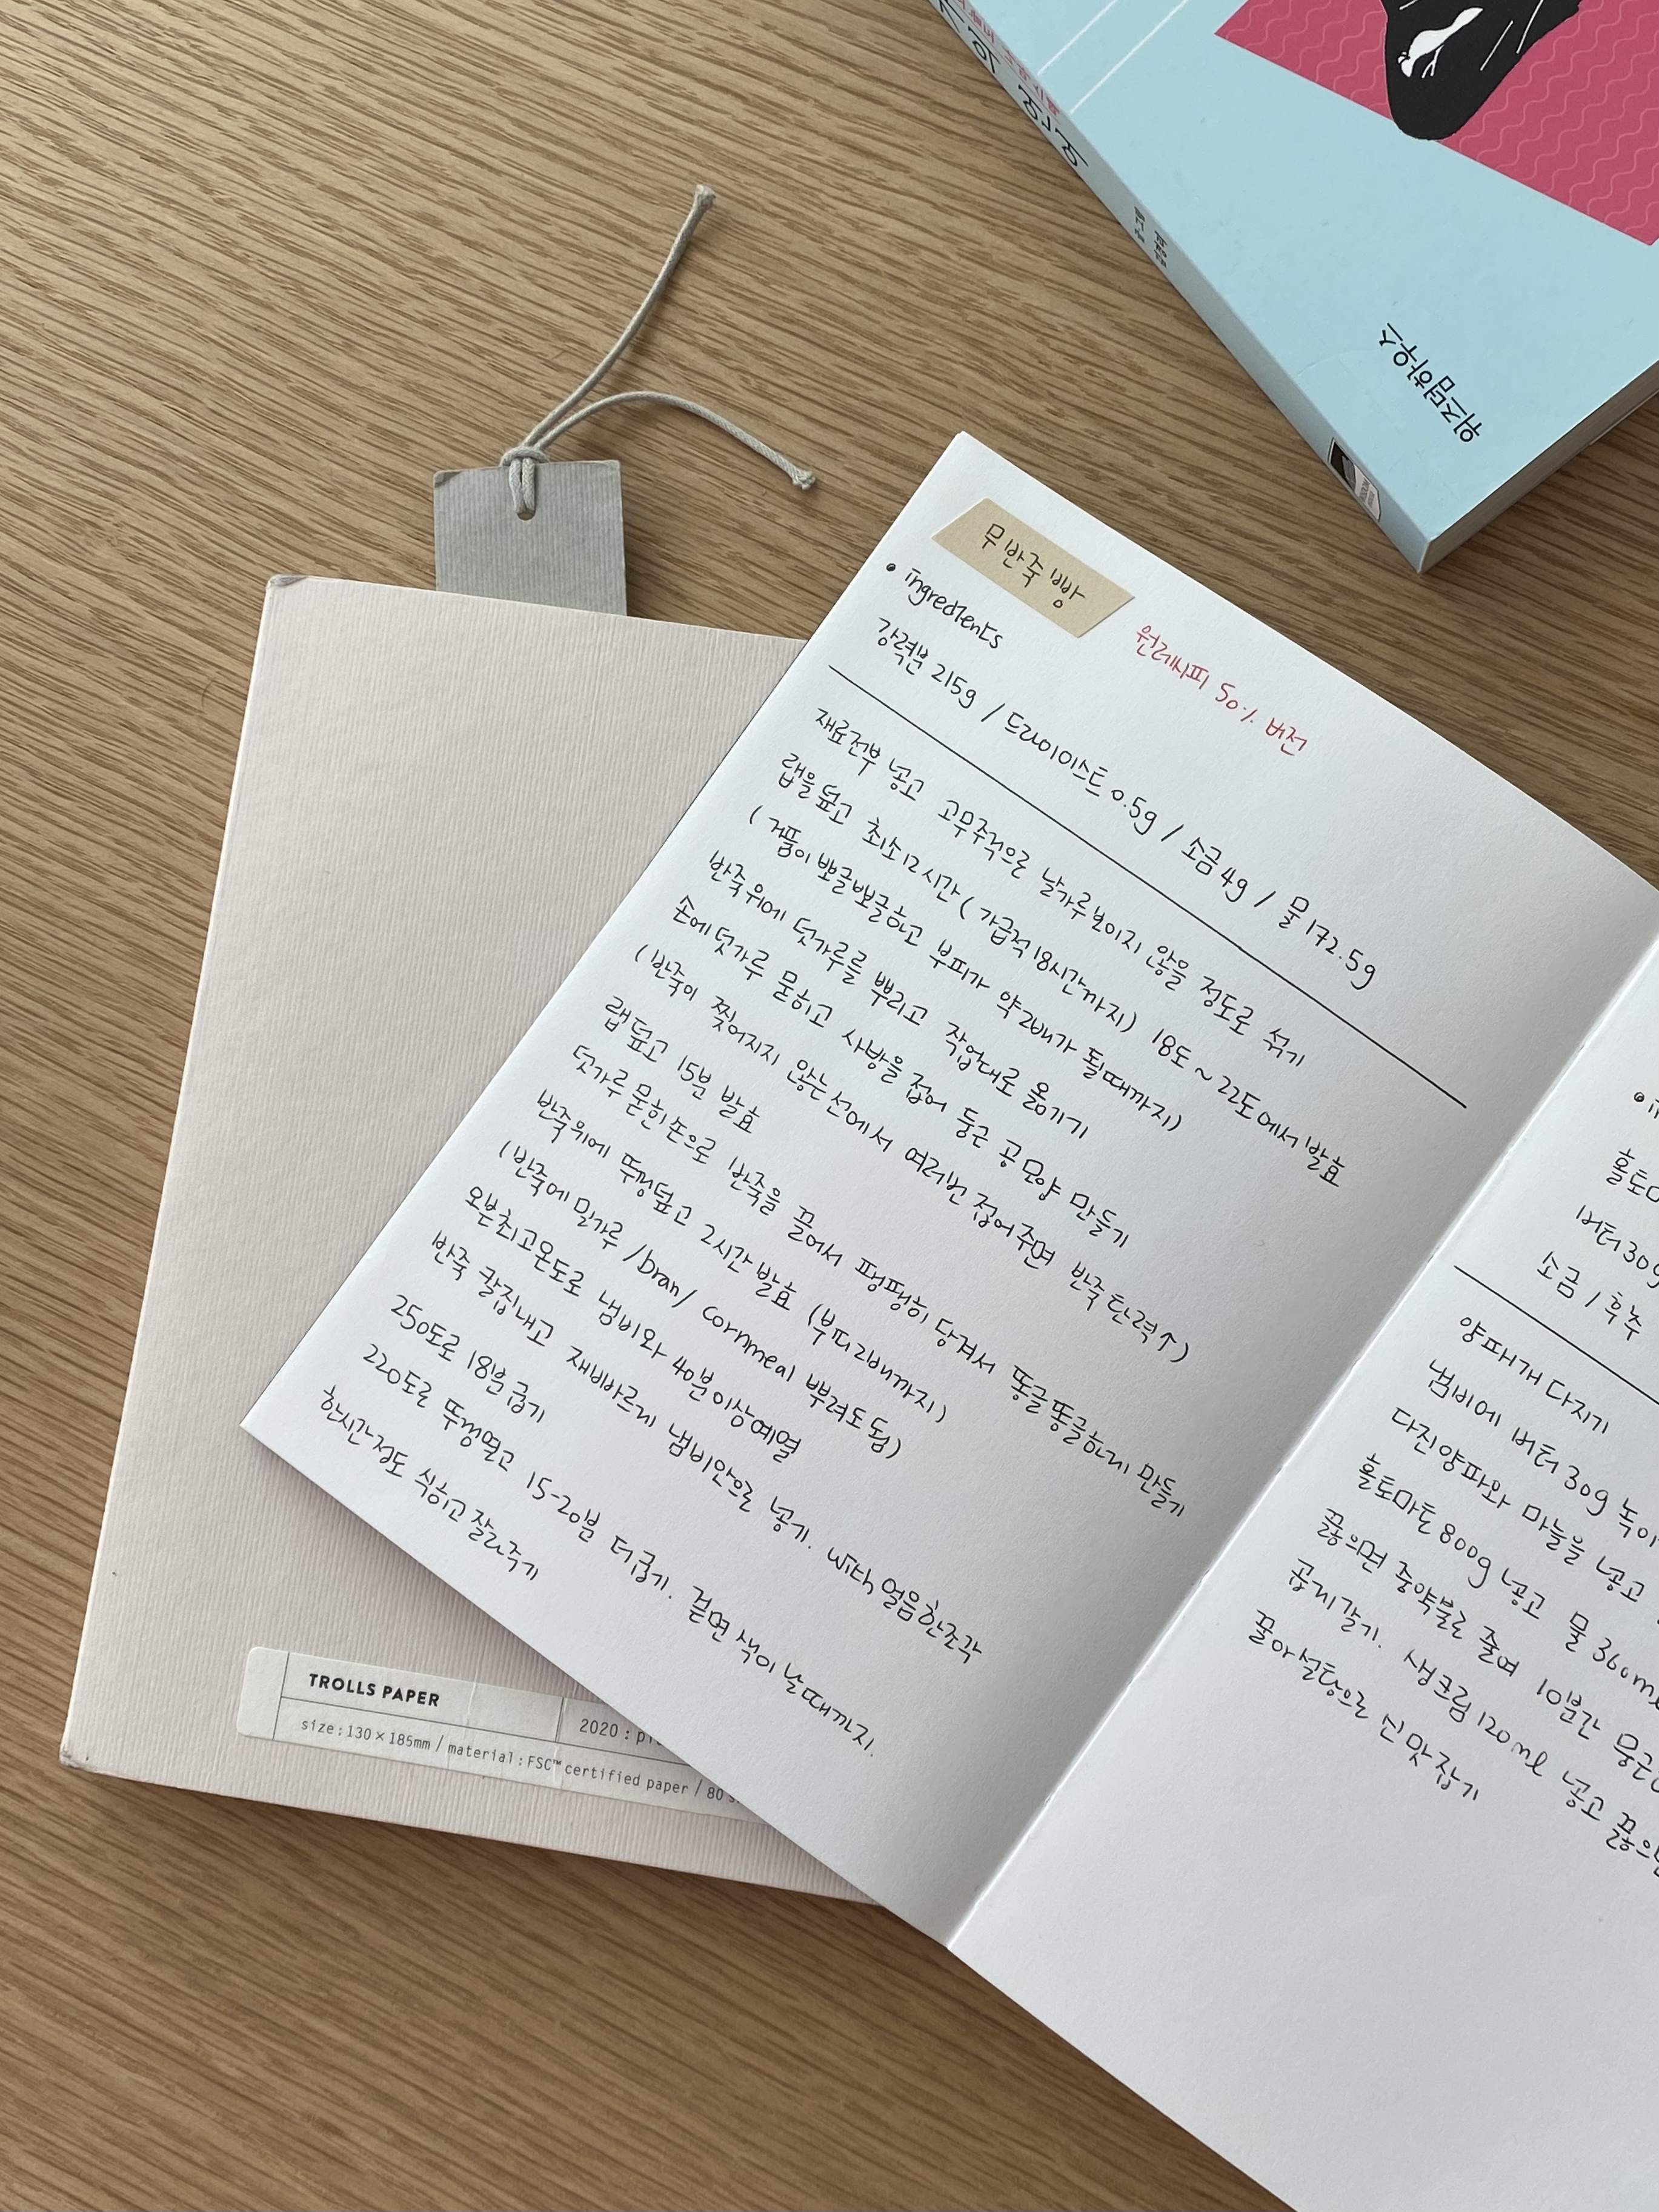 위즈덤하우스
무반죽 빵
원레시피 50% 버전
• ingredients
강력분 215g / 드라이이스트 0.5g / 소금 4g / 물 172.5g
재료전부 넣고 고무주걱으로 날가루 보이지 않을 정도로 섞기
랩을 덮고 최소 12시간 (가급적 18시간까지) 18도 ~ 22도에서 발효
(거품이 뽀글뽀글하고 부피가 약 2배가 될때까지)
반죽위에 덧가루를 뿌리고 작업대로 옮기기
손에 덧가루 묻히고 사방을 접어 둥근 공 모양 만들기
(반죽이 찢어지지 않는선에서 여러번 접어주면 반죽탄력↑)
랩 덮고 15분 발효
덧가루 묻힌손으로 반죽을 끌어서 팽팽히 당겨서 동글동글하게 만들기
반죽위에 뚜껑덮고 2시간 발효 (부피 2배까지)
(반죽에 밀가루 / bran / cornmeal 뿌려도 됨)
오븐최고온도로 냄비와 40분이상예열
반죽 칼집내고 재빠르게 냄비안으로 넣기. with 얼음한조각
250도로 18분 굽기
220도로 뚜껑열고 15-20분 더굽기. 겉면 색이 날때까지.
한시간정도 식히고 잘라주기
홀토마
버터 30g
소금 / 후추
양파 1개 다지기
냄비에 버터 30g 녹이
다진양파와 마늘을 넣고
홀토마토 800g 넣고 물 360ml
끓으면 중약불로 줄여 10분간 뭉근
곱게갈기. 생크림 120ml 넣고 끓으면
꿀이나 설탕으로 신맛잡기
TROLLS PAPER
2020 :
size : 130 × 185mm / material : FSC™ certified paper / 80